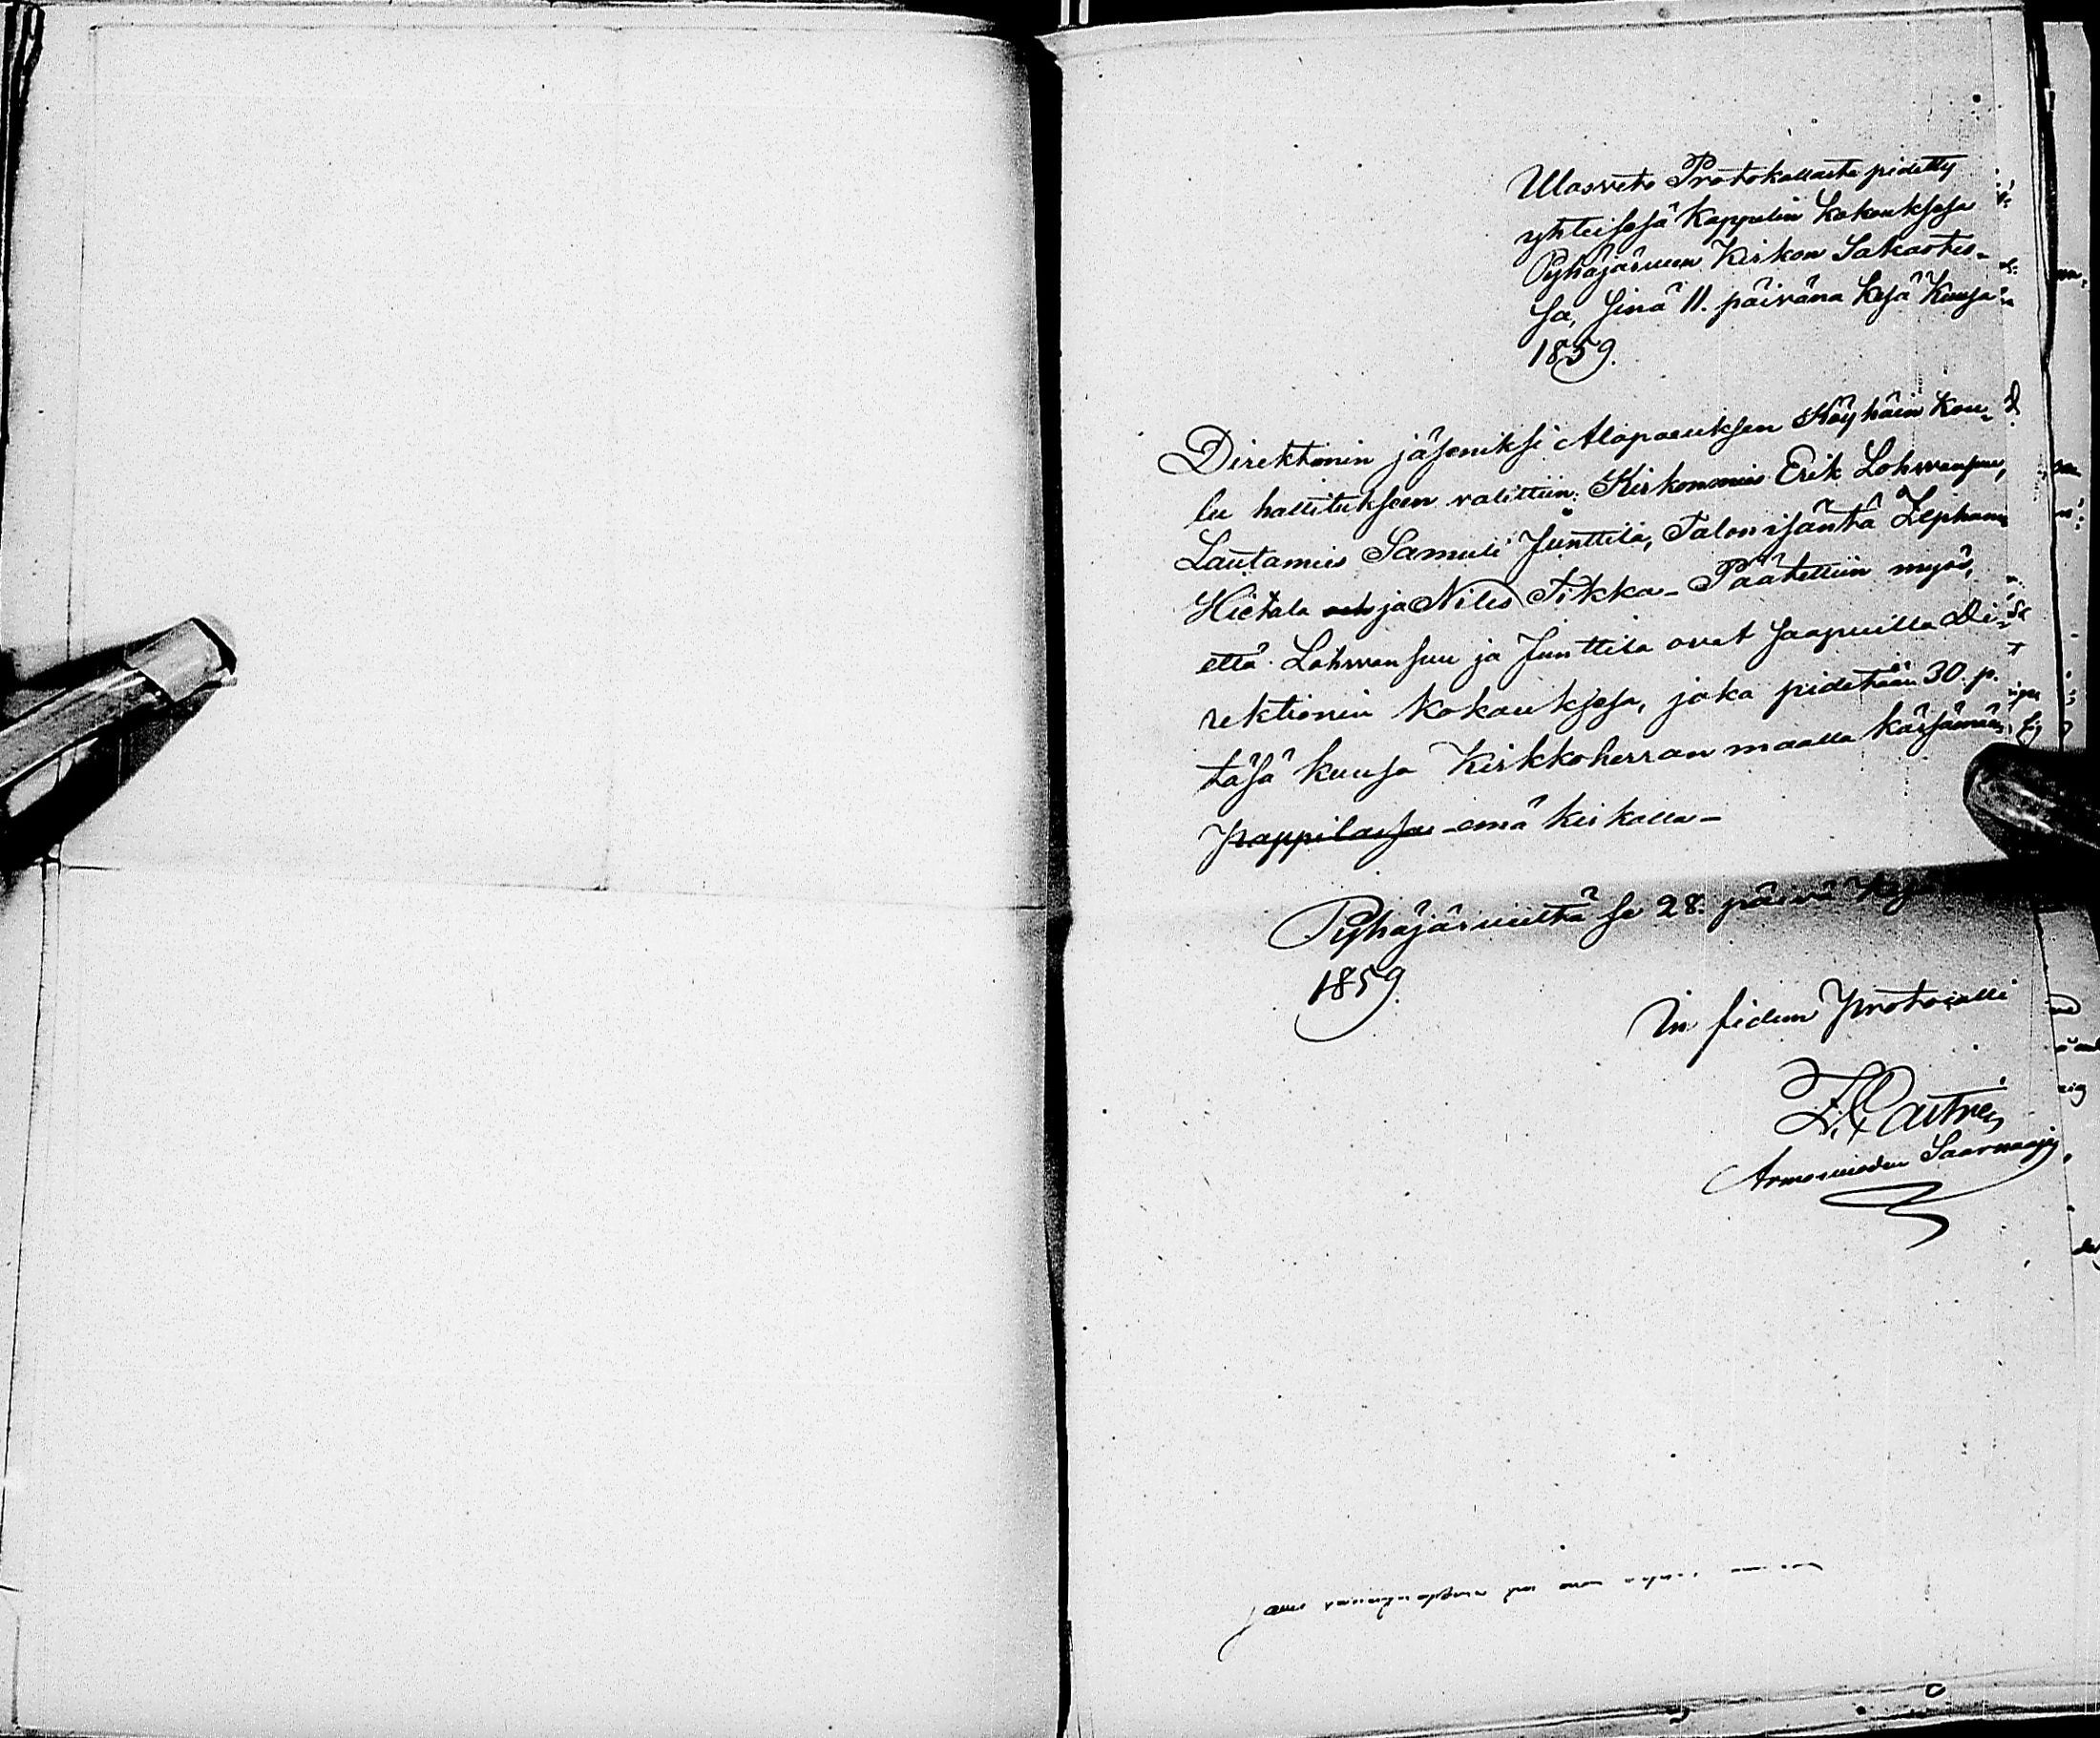 Ulosveto Protokollasta pidetty
yhteisesä Kappelin kokouksesa
Pyhäjärven Kirkon Sakasties-
sa, sinä 11. päivänä Kesä Kuusa
1859.
Direktionin jäseniksi Alapaauksen Köyhäin kou-
lu hallitukseen valittiin: Kirkonmies Erik Lohvansuu,
Lautamies Samuli Junttila, Talon isäntä Zephan
Hietala och ja Niles Tikka - Päätettiin myös,
että Lohvansuu ja Junttila ovat saapuilla Di-
rektionin kokouksesa, joka pidetään 30. p.
täsä kuusa Kirkkoherran maalla kärsämäen
pappilassa emä kirkolla -
Pyhäjärveltä se 28. päivä Kesä
1859.
In fidem Protocolli
Z. Castrén
Armovuoden Saarnaaja